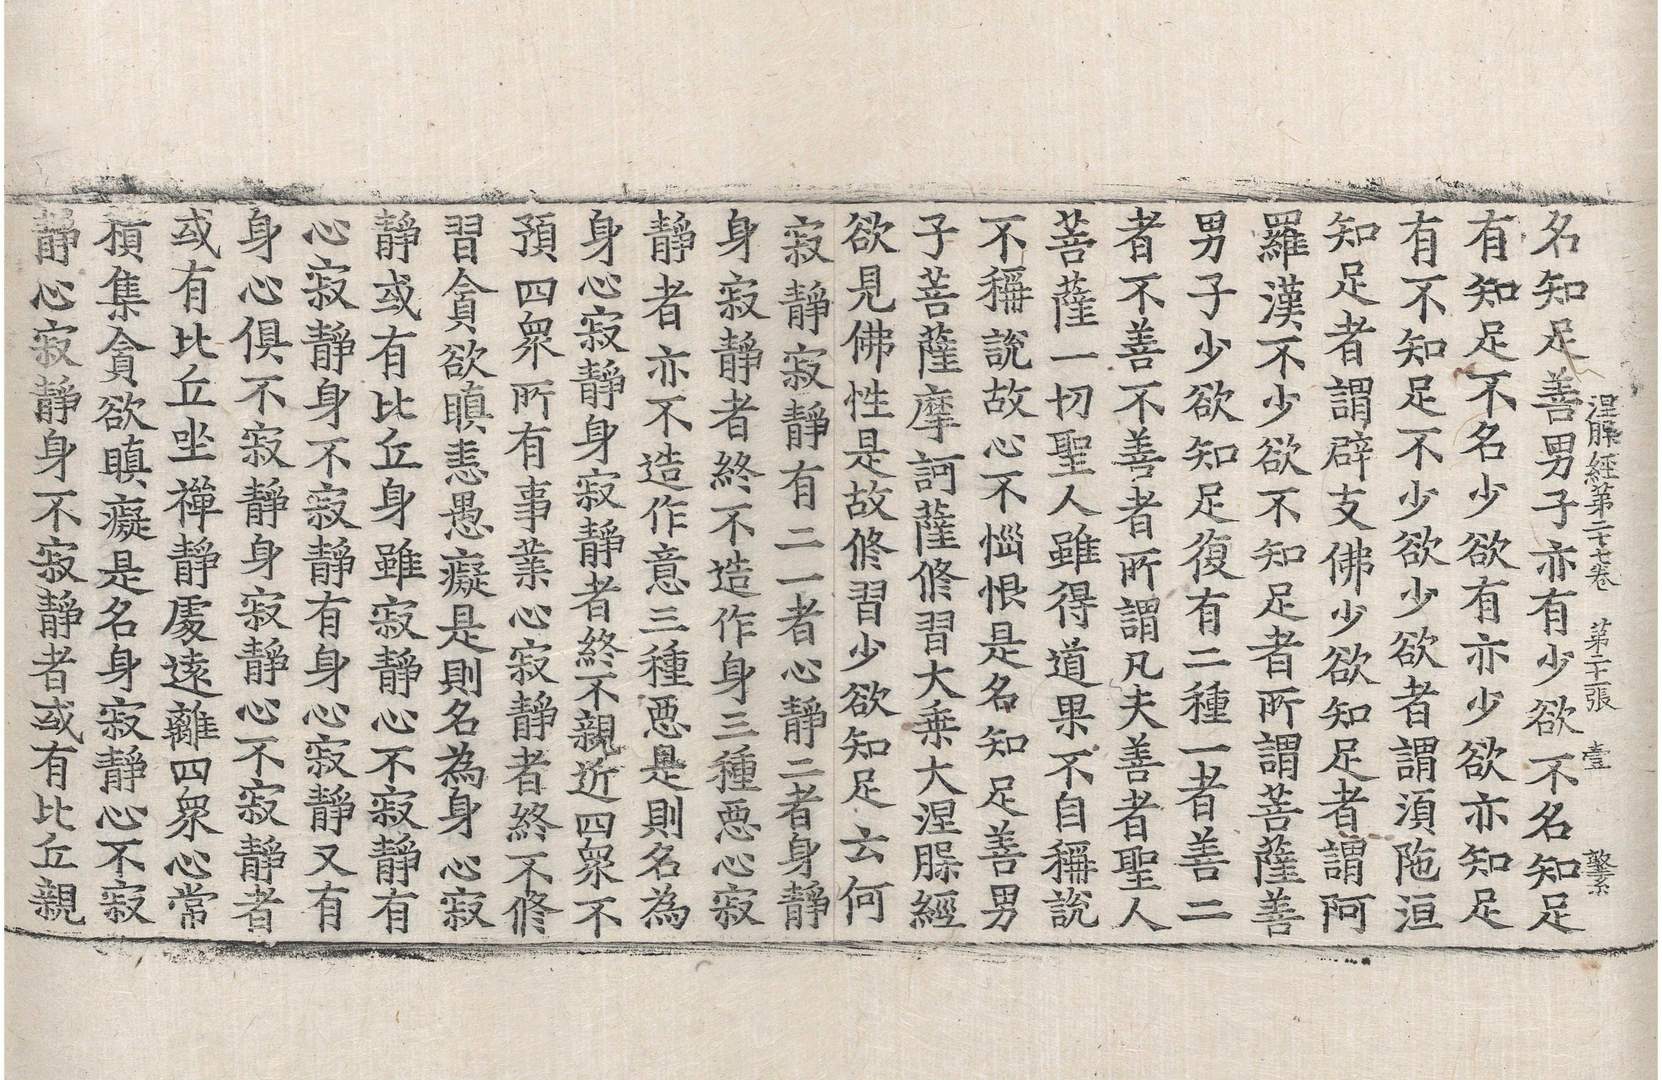 涅槃經第二十七卷 第 張 壹
名知足善男子亦有少欲不名知足
有知足不名少欲有亦少欲亦知足
有不知足不少欲少欲者謂湏陁洹
知足者謂辟支佛少欲知足者謂阿
羅漢不少欲不知足者所謂菩薩善
男子少欲知足復有二種一者善二
者不善不善者所謂凡夫善者聖人
菩薩一切聖人雖得道果不自稱說
不稱說故心不惱恨是名知足善男
子菩薩摩訶薩修習大乗大涅槃經
欲見佛性是故修習少欲知足云何
寂靜寂靜有二一者心靜二者身靜
身寂靜者終不造作身三種惡心寂
靜者亦不造作意三種惡是則名為
身心寂靜身寂靜者終不親近四衆不
預四衆所有事業心寂靜者終不修
習貪欲瞋恚愚癡是則名為身心寂
靜或有比丘身雖寂靜心不寂靜有
心寂靜身不寂靜有身心寂靜又有
身心俱不寂靜身寂靜心不寂靜者
或有比丘坐禪靜處遠離四衆心常
積集貪欲瞋癡是名身寂靜心不寂
靜心寂靜身不寂靜者或有比丘親